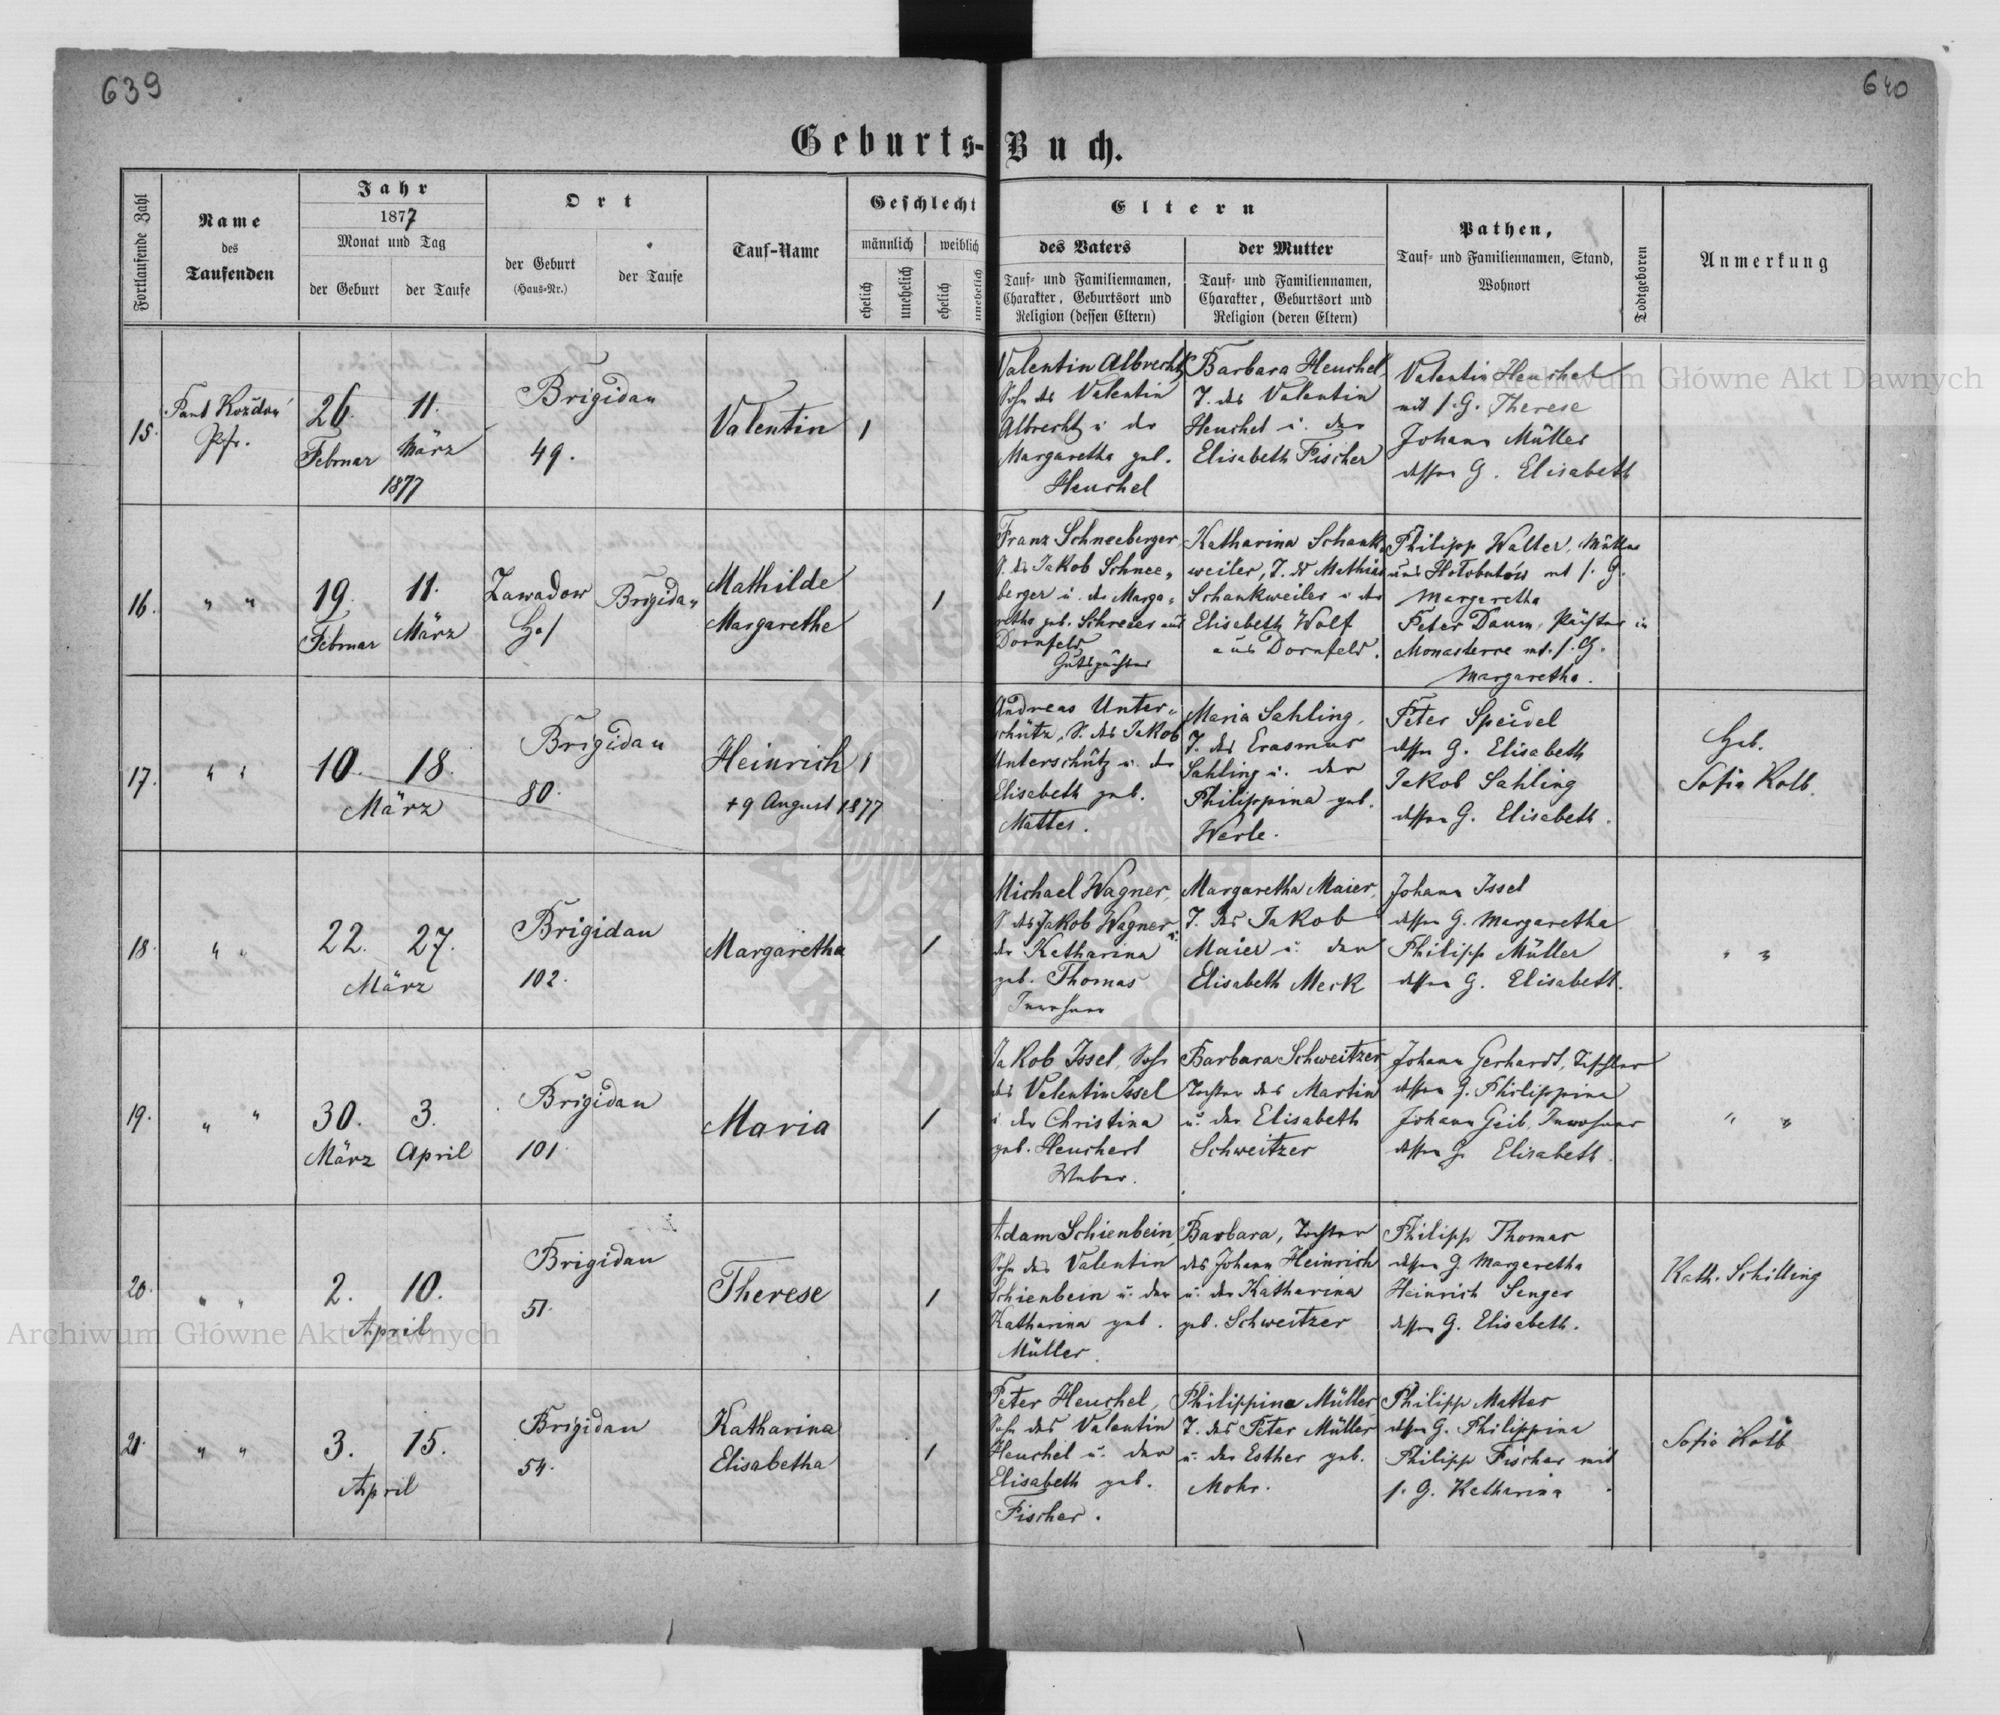 639
640
Geburts-Buch.
Fortlaufende Zahl
Name
des
Taufenden
Jahr
1877
Monat und Tag
der Geburt
der Taufe
Ort
der Geburt
(Haus-Nr.)
der Taufe
Tauf-Name
Geschlecht
männlich
weiblich
ehelich
unehelich
ehelich
unehelich
Eltern
des Vaters
Tauf- und Familiennamen,
Charakter, Geburtsort und
Religion (dessen Eltern)
der Mutter
Tauf- und Familiennamen,
Charakter, Geburtsort und
Religion (deren Eltern)
Pathen,
Tauf- und Familiennamen, Stand,
Wohnort
Todtgeboren
Anmerkung
15.
Paul Kozdoń
Pfr.
26.
Februar
11.
März
1877
Brigidau
49.
Valentin
1
Valentin Albrecht,
Sohn des Valentin
Albrecht u. der
Margaretha geb.
Heuchel
Barbara Heuchel,
T. des Valentin
Heuchel u. der
Elisabeth Fischer
Valentin Heuchel
mit s. G. Therese
Johann Müller
dessen G. Elisabeth
16.
" "
19.
Februar
11.
März
Zawadow
Brigidau
Mathilde
Margarethe
1
Franz Schneeberger,
S. des Jakob Schnee-
berger u. der Marga-
retha geb. Schreier aus
Dornfeld,
Gutspächter
Katharina Schank-
weiler, T. des Mathias
Schankweiler u. der
Elisabeth Wolf
aus Dornfeld.
Philipp Walter, Müller
aus Hołobutów mit s. G.
Margaretha
Peter Daum, Pächter in
Monasterce mit s. G.
Margaretha.
17.
" "
10. 18.
März
Brigidau
80.
Heinrich
† 9 August 1877
1
Andreas Unter-
schütz, S. des Jakob
Unterschütz u. der
Elisabeth geb.
Mattes.
Maria Sahling,
T. des Erasmus
Sahling u. der
Philippina geb.
Werle.
Peter Speidel
dessen G. Elisabeth
Jakob Sahling
dessen G. Elisabeth.
Heb.
Sofia Kolb.
18.
" "
22. 27.
März
Brigidau
102.
Margaretha
1
Michael Wagner,
S. des Jakob Wagner u.
der Katharina
geb. Thomas
Inwohner
Margaretha Maier,
T. des Jakob
Maier u. der
Elisabeth Meck
Johann Issel
dessen G. Margaretha
Philipp Müller
dessen G. Elisabeth.
" "
19.
" "
30.
März
3.
April
Brigidau
101
Maria
1
Jakob Issel, Sohn
des Valentin Issel
u. der Christina
geb. Heuchert
Weber.
Barbara Schweitzer
Tochter des Martin
u. der Elisabeth
Schweitzer
Johann Gerhardt, Tischler
dessen G. Philippina
Johann Geib, Inwohner
dessen G. Elisabeth.
" "
20.
" "
2. 10.
April
Brigidau
51.
Therese
1
Adam Schienbein,
Sohn des Valentin
Schienbein u. der
Katharina geb.
Müller.
Barbara, Tochter
des Johann Heinrich
u. der Katharina
geb. Schweitzer
Philipp Thomas
dessen G. Margaretha
Heinrich Senger
dessen G. Elisabeth.
Kath. Schilling
21.
" "
3. 15.
April
Brigidau
54.
Katharina
Elisabetha
1
Peter Heuchel,
Sohn des Valentin
Heuchel u. der
Elisabeth geb.
Fischer.
Philippine Müller
T. des Peter Müller
u. der Esther geb.
Mohr.
Philipp Mattes
dessen G. Philippina
Philipp Fischer mit
s. G. Katharina.
Sofia Kolb
Archiwum Główne Akt Dawnych
Archiwum Główne Akt Dawnych